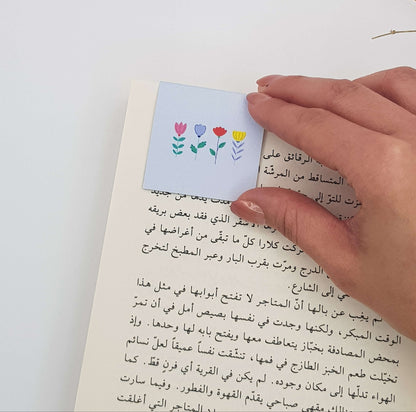 الرقائق على
المتساقط من المرشّة
للتوّ إلى
الذي فقد بعض بريقه
تركت كلارا كلّ ما تبقّى من أغراضها في
الدرج ومرّت بقرب البار وعبر المطبخ لتخرج
إلى الشارع.
لم يغِب عن بالها أنّ المتاجر لا تفتح أبوابها في مثل هذا
الوقت المبكر، ولكنها وجدت في نفسها بصيص أمل في أن تمرّ
بمحض المصادفة بخبّاز يتعاطف معها ويفتح بابه لها وحدها. وإذ
تخيّلت طعم الخبز الطازج في فمها، تنشّقت نفساً عميقاً لعلّ نسائم
الهواء تدلّها إلى مكان وجوده. لم يكن في القرية أي فرن قطّ. كما
مقهى صباحي يقدّم القهوة والفطور. وفيما سارت
المتاجر التي أغلقت